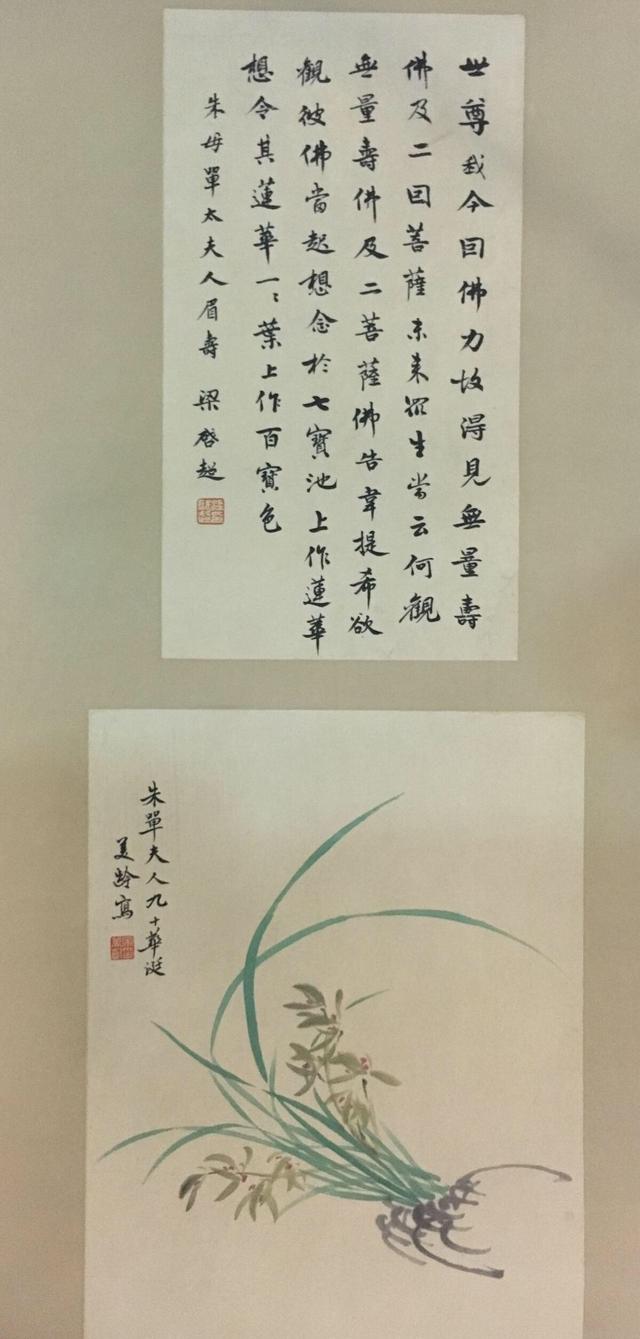 世尊我今因佛力故得見無量壽
佛及二因菩薩未來眾生當云何觀
無量壽佛及二菩薩佛告韋提希欲
觀彼佛當起想念於七寶池上作蓮華
想令其蓮華一〻葉上作百寶色
朱母單太夫人眉壽 梁啓超
朱單夫人九十華誕
美齡寫